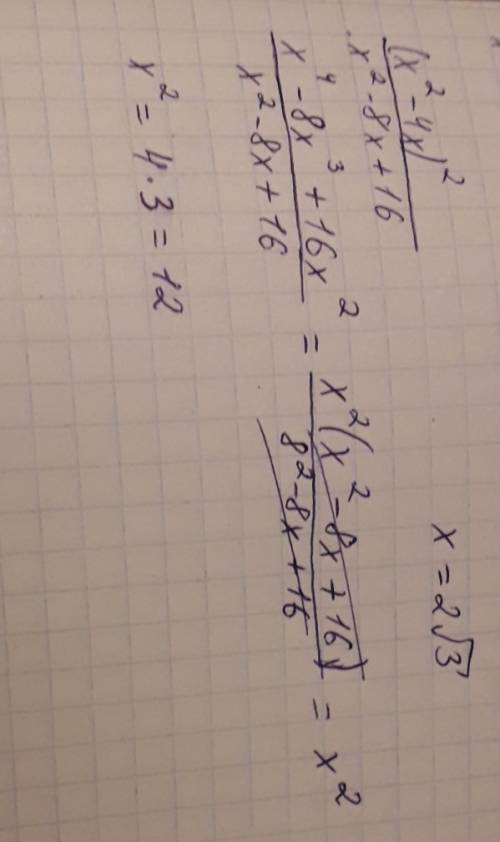 (x² - 4x)² / x² - 8x + 16    x = 2√3
x⁴ - 8x³ + 16x² / x² - 8x + 16 = x²(x² - 8x + 16) / 8² - 8x + 16 = x²
x² = 4 · 3 = 12